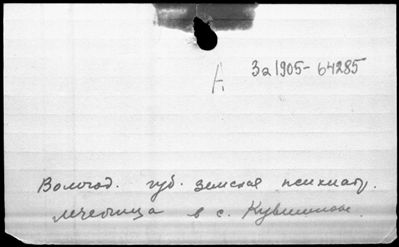 А За 1905-64285
Вологод. губ. земская психиатр.
лечебница в с. Кувшинове.